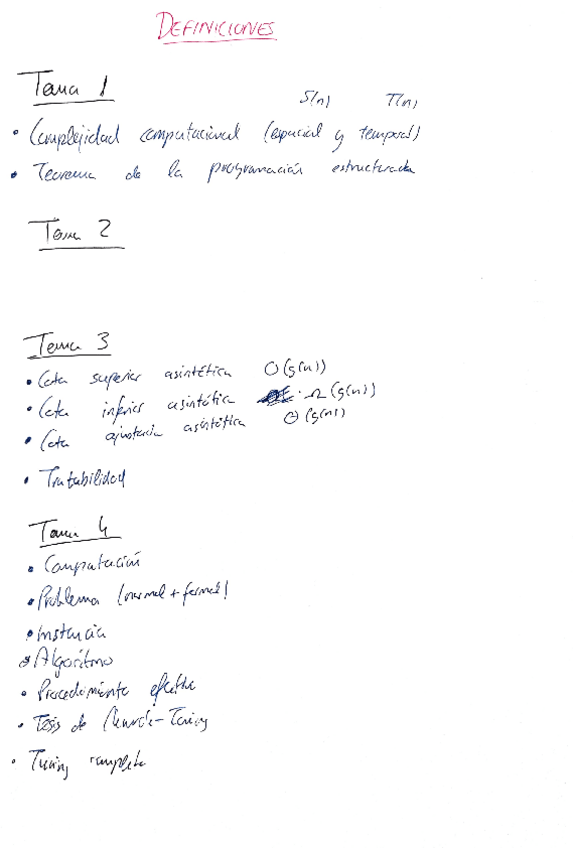 DEFINICIONES
Tema 1
S(n) T(n)
• Complejidad computacional (espacial y temporal)
• Teorema de la programación estructurada
Tema 2
Tema 3
• Cota superior asintótica O(g(n))
• Cota inferior asintótica Ω(g(n))
• Cota ajustada asintótica Θ(g(n))
• Tratabilidad
Tema 4
• Computación
• Problema (normal + formal)
• Instancia
• Algoritmo
• Procedimiento efectivo
• Tesis de Church-Turing
• Turing completo